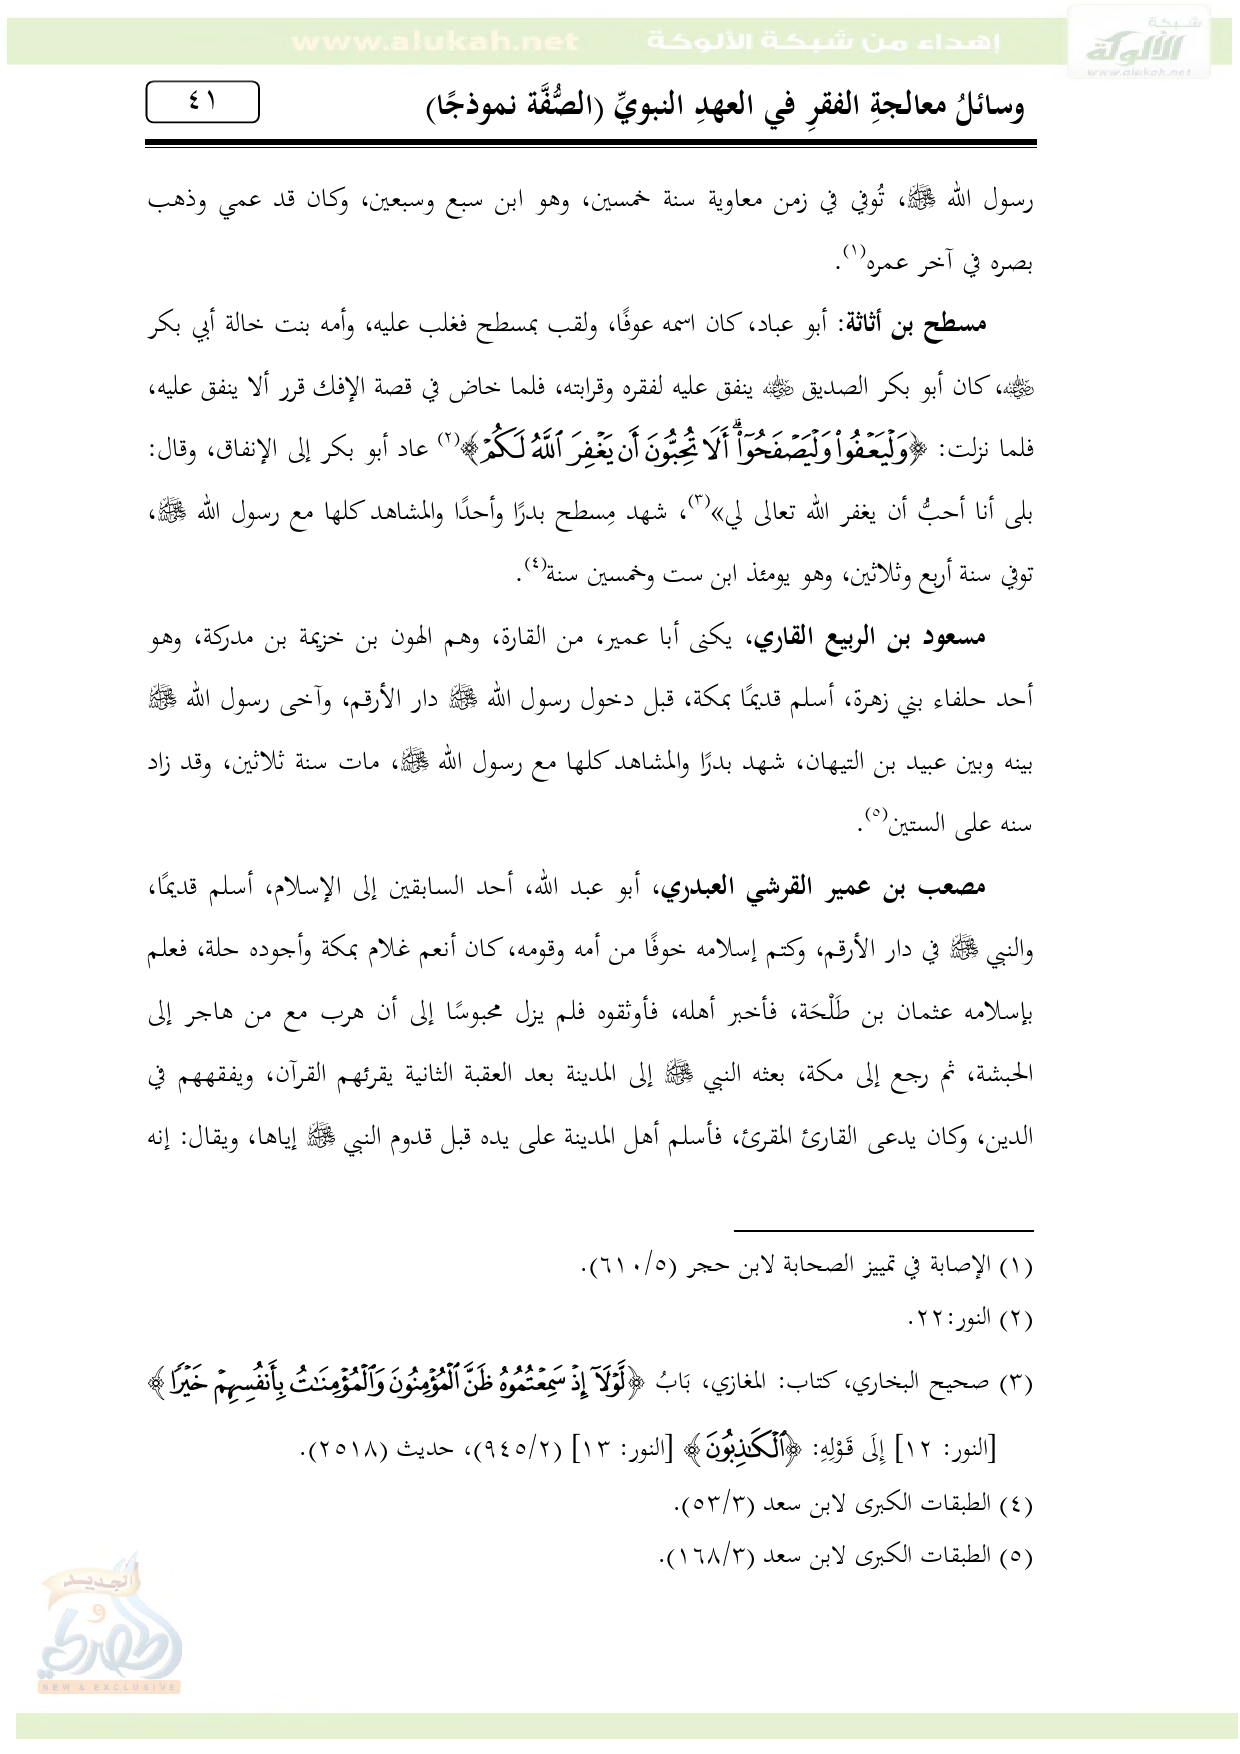 www.alukah.net إهداء من شبكة الألوكة
شبكة
الألوكة
www.alukah.net
وسائلُ معالجةِ الفقرِ في العهدِ النبويِّ (الصُّفَّة نموذجًا) ٤١
رسول الله ﷺ، تُوفي في زمن معاوية سنة خمسين، وهو ابن سبع وسبعين، وكان قد عمي وذهب
بصره في آخر عمره(١).
مسطح بن أثاثة: أبو عباد، كان اسمه عوفًا، ولقب بمسطح فغلب عليه، وأمه بنت خالة أبي بكر
رضي الله عنه، كان أبو بكر الصديق رضي الله عنه ينفق عليه لفقره وقرابته، فلما خاض في قصة الإفك قرر ألا ينفق عليه،
فلما نزلت: ﴿وَلۡيَعۡفُواْ وَلۡيَصۡفَحُوٓاْۗ أَلَا تُحِبُّونَ أَن يَغۡفِرَ ٱللَّهُ لَكُمۡ﴾(٢) عاد أبو بكر إلى الإنفاق، وقال:
بلى أنا أحبُّ أن يغفر الله تعالى لي»(٣)، شهد مِسطح بدرًا وأحدًا والمشاهد كلها مع رسول الله ﷺ،
توفي سنة أربع وثلاثين، وهو يومئذ ابن ست وخمسين سنة(٤).
مسعود بن الربيع القاري، يكنى أبا عمير، من القارة، وهم الهون بن خزيمة بن مدركة، وهو
أحد حلفاء بني زهرة، أسلم قديمًا بمكة، قبل دخول رسول الله ﷺ دار الأرقم، وآخى رسول الله ﷺ
بينه وبين عبيد بن التيهان، شهد بدرًا والمشاهد كلها مع رسول الله ﷺ، مات سنة ثلاثين، وقد زاد
سنه على الستين(٥).
مصعب بن عمير القرشي العبدري، أبو عبد الله، أحد السابقين إلى الإسلام، أسلم قديمًا،
والنبي ﷺ في دار الأرقم، وكتم إسلامه خوفًا من أمه وقومه، كان أنعم غلام بمكة وأجوده حلة، فعلم
بإسلامه عثمان بن طَلْحَة، فأخبر أهله، فأوثقوه فلم يزل محبوسًا إلى أن هرب مع من هاجر إلى
الحبشة، ثم رجع إلى مكة، بعثه النبي ﷺ إلى المدينة بعد العقبة الثانية يقرئهم القرآن، ويفقههم في
الدين، وكان يدعى القارئ المقرئ، فأسلم أهل المدينة على يده قبل قدوم النبي ﷺ إياها، ويقال: إنه
(١) الإصابة في تمييز الصحابة لابن حجر (٦١٠/٥).
(٢) النور:٢٢.
(٣) صحيح البخاري، كتاب: المغازي، بَابُ ﴿لَّوۡلَآ إِذۡ سَمِعۡتُمُوهُ ظَنَّ ٱلۡمُؤۡمِنُونَ وَٱلۡمُؤۡمِنَٰتُ بِأَنفُسِهِمۡ خَيۡرٗا﴾
[النور: ١٢] إِلَى قَوْلِهِ: ﴿ٱلۡكَٰذِبُونَ﴾ [النور: ١٣] (٩٤٥/٢)، حديث (٢٥١٨).
(٤) الطبقات الكبرى لابن سعد (٥٣/٣).
(٥) الطبقات الكبرى لابن سعد (١٦٨/٣).
الجديد
و
الحصري
NEW & EXCLUSIVE